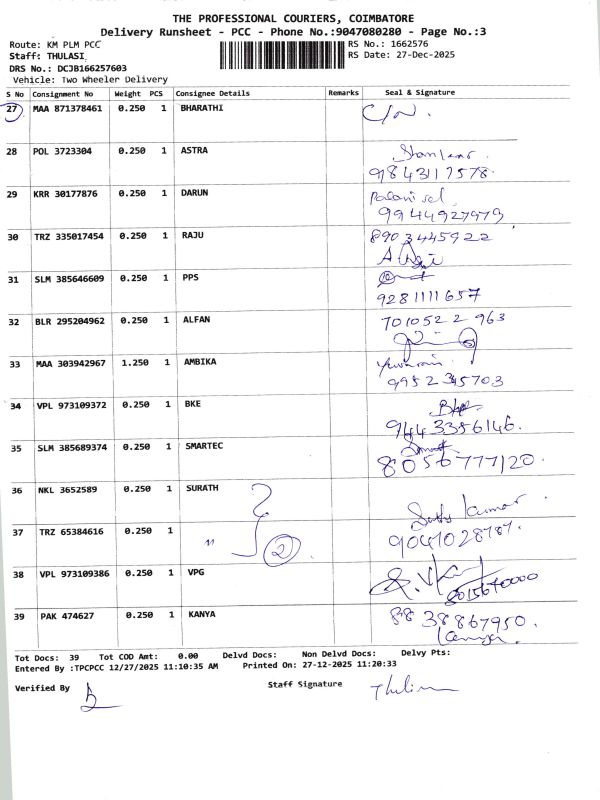 THE PROFESSIONAL COURIERS, COIMBATORE
Delivery Runsheet - PCC - Phone No.:9047080280 - Page No.:3
Route: KM PLM PCC
RS No.: 1662576
Staff: THULASI
RS Date: 27-Dec-2025
DRS No.: DCJB166257603
Vehicle: Two Wheeler Delivery
S No Consignment No Weight PCS Consignee Details Remarks Seal & Signature
27 MAA 871378461 0.250 1 BHARATHI
28 POL 3723304 0.250 1 ASTRA
9843117578
29 KRR 30177876 0.250 1 DARUN
9944927979
30 TRZ 335017454 0.250 1 RAJU 8903445922
31 SLM 385646609 0.250 1 PPS
9281111657
32 BLR 295204962 0.250 1 ALFAN 7010522963
33 MAA 303942967 1.250 1 AMBIKA
9952345703
34 VPL 973109372 0.250 1 BKE
9443356146.
35 SLM 385689374 0.250 1 SMARTEC
8056777120.
36 NKL 3652589 0.250 1 SURATH
37 TRZ 65384616 0.250 1 " 2
9041028787.
38 VPL 973109386 0.250 1 VPG
8015640000
39 PAK 474627 0.250 1 KANYA 8838867950.
Kanya
Tot Docs: 39 Tot COD Amt: 0.00 Delvd Docs: Non Delvd Docs: Delvy Pts:
Entered By :TPCPCC 12/27/2025 11:10:35 AM Printed On: 27-12-2025 11:20:33
Verified By Staff Signature